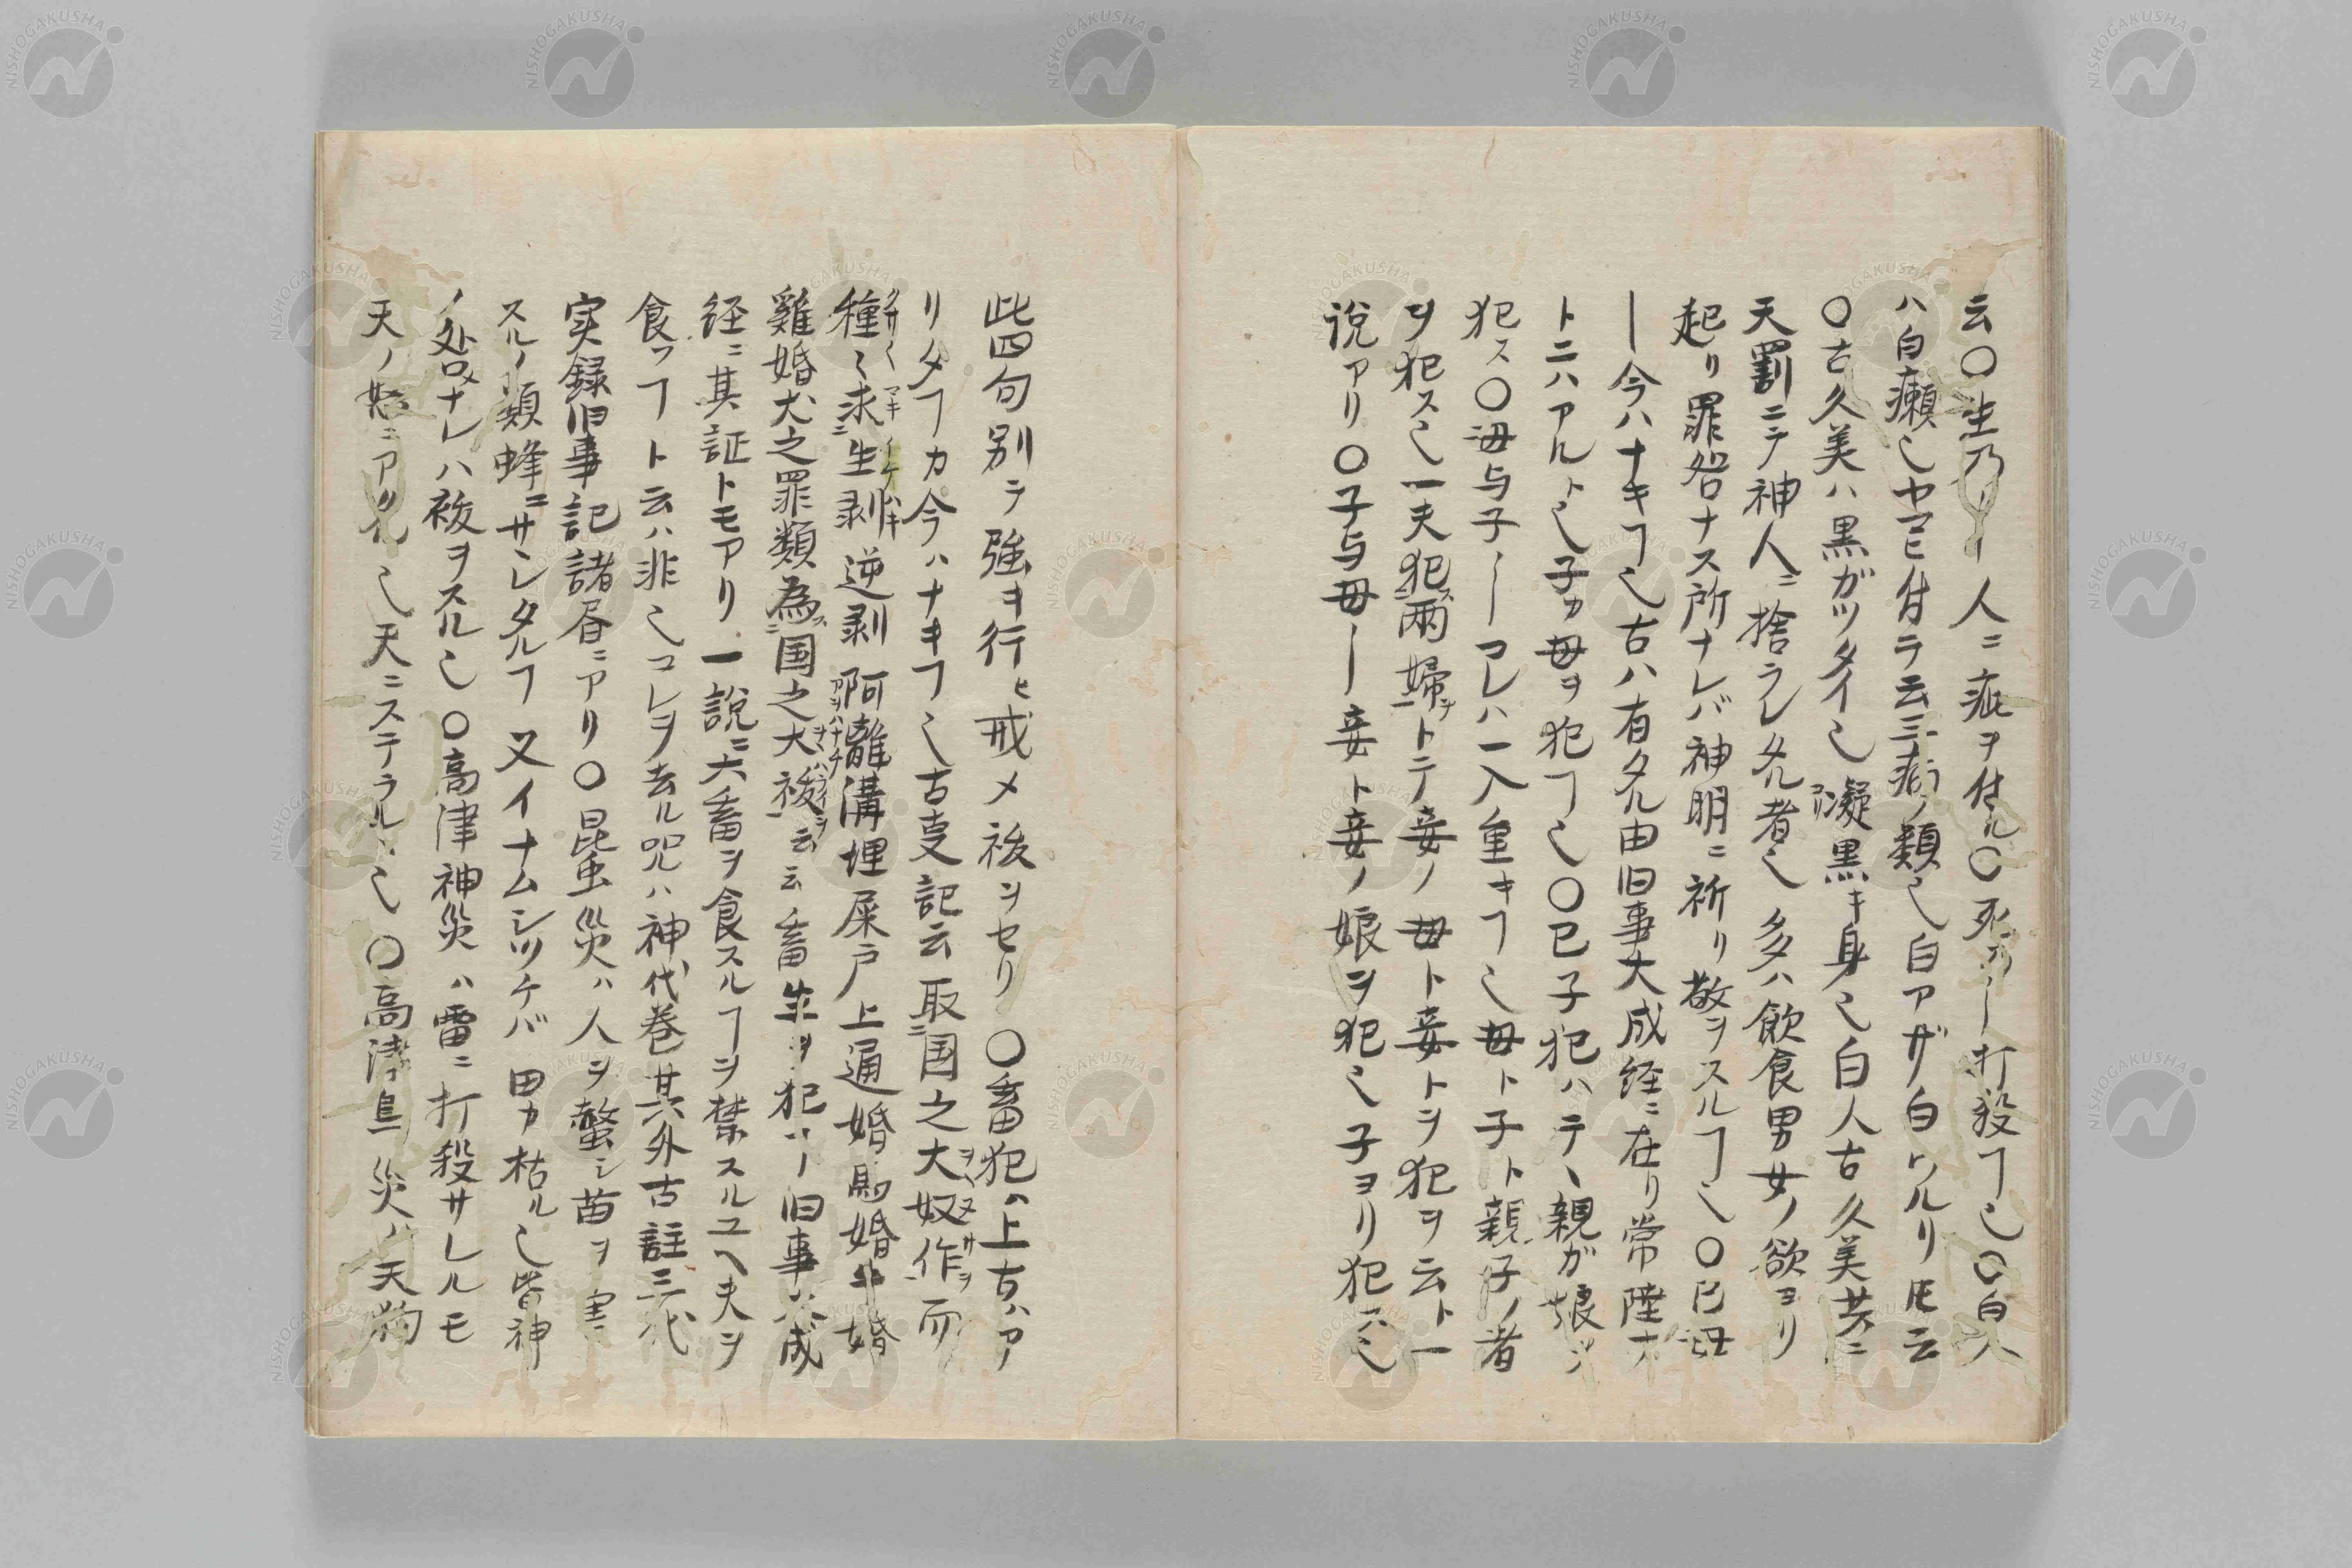 云〇生乃ノー人ニ疵ヲ付ル〇死乃ー打殺ヿ也〇白人
ハ白癩也ヤマヒ付テ云三病ノ類也白アザ白ワルリ𪜈云
〇古久美ハ黒ガツタイ也凝黒キ身也白人古久美共ニ
天罰ニテ神人ニ捨ラレタル者也多ハ飲食男女ノ欲ヨリ
起リ罪咎ナス所ナレバ神明ニ祈リ敬ヲスルヿ也〇己母
ー今ハナキヿ也古ハ有タル由旧事大成経ニ在リ常陸ナ
トニハアルト也子カ母ヲ犯ヿ也〇己子犯ハテヽ親ガ娘ヲ
犯ス〇母与子ーコレハ一入重キヿ也母ト子ト親子ノ者
ヲ犯ス也一夫犯両婦トテ妾ノ母ト妾トヲ犯ヲ云ト一
説アリ〇子与母ー妾ト妾ノ娘ヲ犯也子ヨリ犯ス也
此四句別テ強ヲ行ヒ戒メ祓ヲセリ〇畜犯ハ上古ハア
リタヿカ今ハナキヿ也古事記云取国之大奴作而
種々求生剥逆剥阿離溝埋屎戸上通婚馬婚牛婚
雞婚犬之罪類為国之大祓云云畜生ヲ犯ー旧事大成
経ニ其証トモアリ一説ニ六畜ヲ食スルヿヲ禁スルユヘ夫ヲ
食フヿト云ハ非也コレヲ去ル呪ハ神代巻其外古註三代
実録旧事記諸書ニアリ〇昆虫災ハ人ヲ螫シ苗ヲ害
スルノ類蜂ニサヽレタルヿ又イナムシツケバ田カ枯ル也皆神
ノ咎ナレハ祓ヲスル也〇高津神災ハ雷ニ打殺サレルモ
天ノ怒ニアタル也天ニステラルヽ也〇高津鳥災ハ天狗
NISHOGAKUSHA